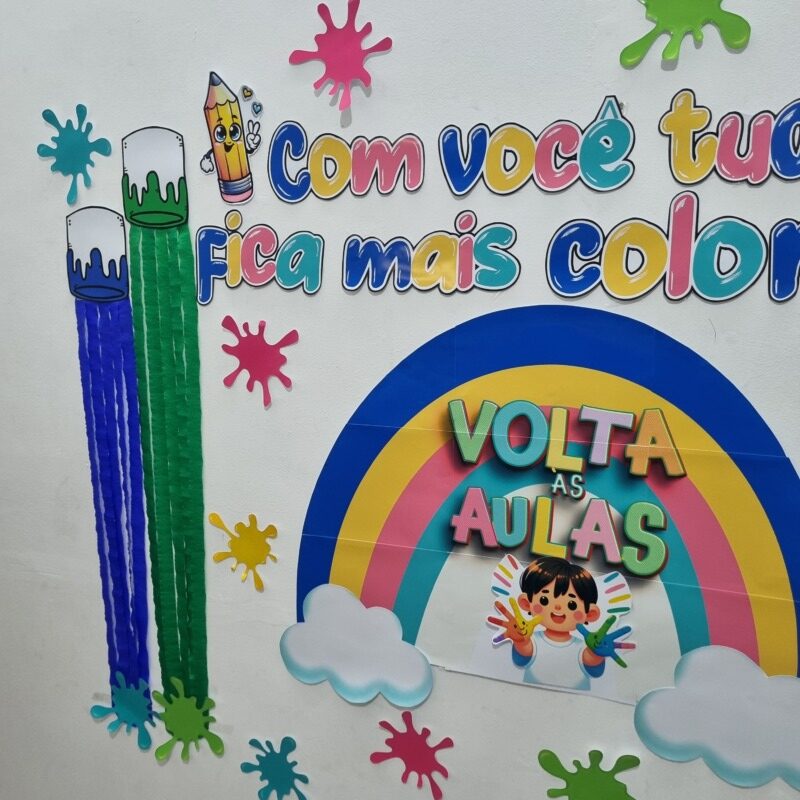 Com você tud
Fica mais color
VOLTA
ÀS
AULAS